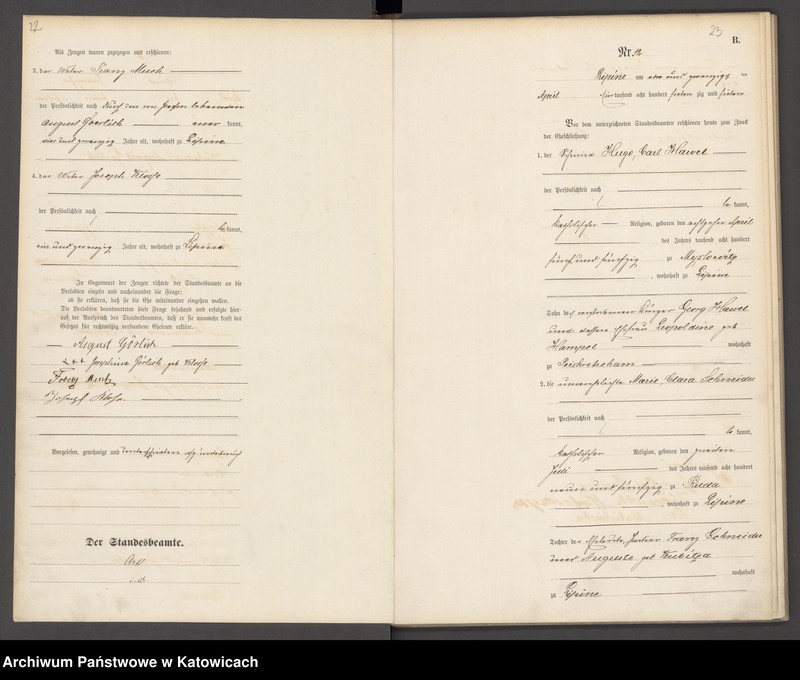 22
Als Zeugen waren zugezogen und erschienen:
3. der Vater Franz Much
der Persönlichkeit nach durch den von Person bekannten
August Goerlich kannt,
vier und zwanzig Jahre alt, wohnhaft zu Lipine
4. der Joseph Klose
der Persönlichkeit nach
be kannt,
ein und zwanzig Jahre alt, wohnhaft zu Lipine
In Gegenwart der Zeugen richtete der Standesbeamte an die
Verlobten einzeln und nacheinander die Frage:
ob sie erklären, daß sie die Ehe miteinander eingehen wollen.
Die Verlobten beantworteten diese Frage bejahend und erfolgte hier-
auf der Ausspruch des Standesbeamten, daß er sie nunmehr kraft des
Gesetzes für rechtmäßig verbundene Eheleute erkläre.
August Görlich
+++ Josephine Görlich geb Klose
Franz
Joseph Klose
Vorgelesen, genehmigt und
Der Standesbeamte.
23
B.
Nr. 12
Lipine am ein und zwanzigsten
April tausend acht hundert sieben zig und sieben
Vor dem unterzeichneten Standesbeamten erschienen heute zum Zweck
der Eheschließung:
1. der Hugo, Carl Hawel
der Persönlichkeit nach
be kannt,
katholischer Religion, geboren den achtzehn April
des Jahres tausend acht hundert
fünf und fünfzig zu Myslowitz
, wohnhaft zu Lipine
Sohn des verstorbenen Georg Hawel
und dessen Ehefrau Leopoldine geb
Hampel wohnhaft
zu Peiskretscham
2. die unverehelichte Marie, Clara Schneider
der Persönlichkeit nach
be kannt,
katholischer Religion, geboren den zweiten
Juli des Jahres tausend acht hundert
neun und fünfzig zu Ruda
, wohnhaft zu Lipine
Tochter der Eheleute, Franz Schneider
und Auguste geb Kubitza
wohnhaft
zu Lipine
Archiwum Państwowe w Katowicach